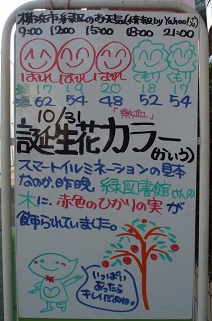 横浜市緑区のお天気(情報by Yahoo!)
9:00 12:00 15:00 18:00 21:00
はれ はれ はれ くもり くもり
17 19 20 18 17
62 54 48 52 54
10/31 「熱血」
誕生花カラー
(かいう)
スマートイルミネーションの見本
なのか、昨晩、緑図書館さんの
木に、赤色のひかりの実が
飾られていました。
いっぱい
あったら
キレイだわね。